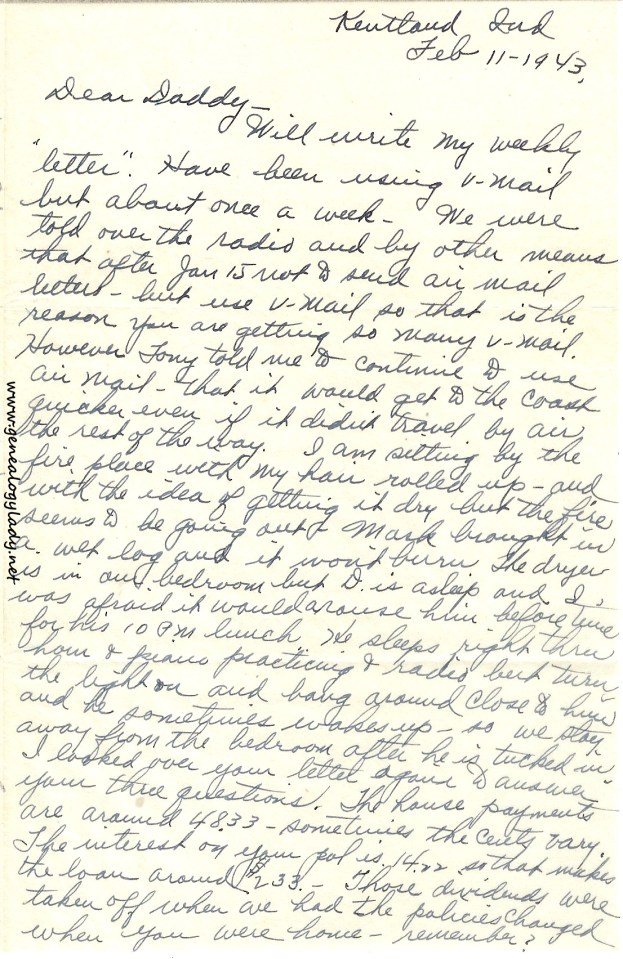 Kentland Ind
Feb 11-1943,
Dear Daddy-
Will write my weekly
"letter". Have been using V-mail
but about once a week- We were
told over the radio and by other means
that after Jan 15 not to send air mail
letters - but use V-Mail so that is the
reason you are getting so many V-mail.
However Tony told me to continue to use
air mail - that it would get to the coast
quicker even if it didn't travel by air
the rest of the way. I am sitting by the
fire place with my hair rolled up - and
with the idea of getting it dry but the fire
seems to be going out - Mark brought in
a wet log and it won't burn. The dryer
is in our bedroom but D. is asleep and I
was afraid it would arouse him before time
for his 10 PM lunch. He sleeps right thru
horn & piano practicing & radio but turn
the light on and bang around close to him
and he sometimes wakes up - so we stay
away from the bedroom after he is tucked in.
I looked over your letter again to answer
your three questions. The house payments
are around 48.33 - sometimes the cents vary.
The interest on your pol is 14.22 so that makes
the loan around $233.- Those dividends were
taken off when we had the policies changed
when you were home - remember?
www.genealogylady.net